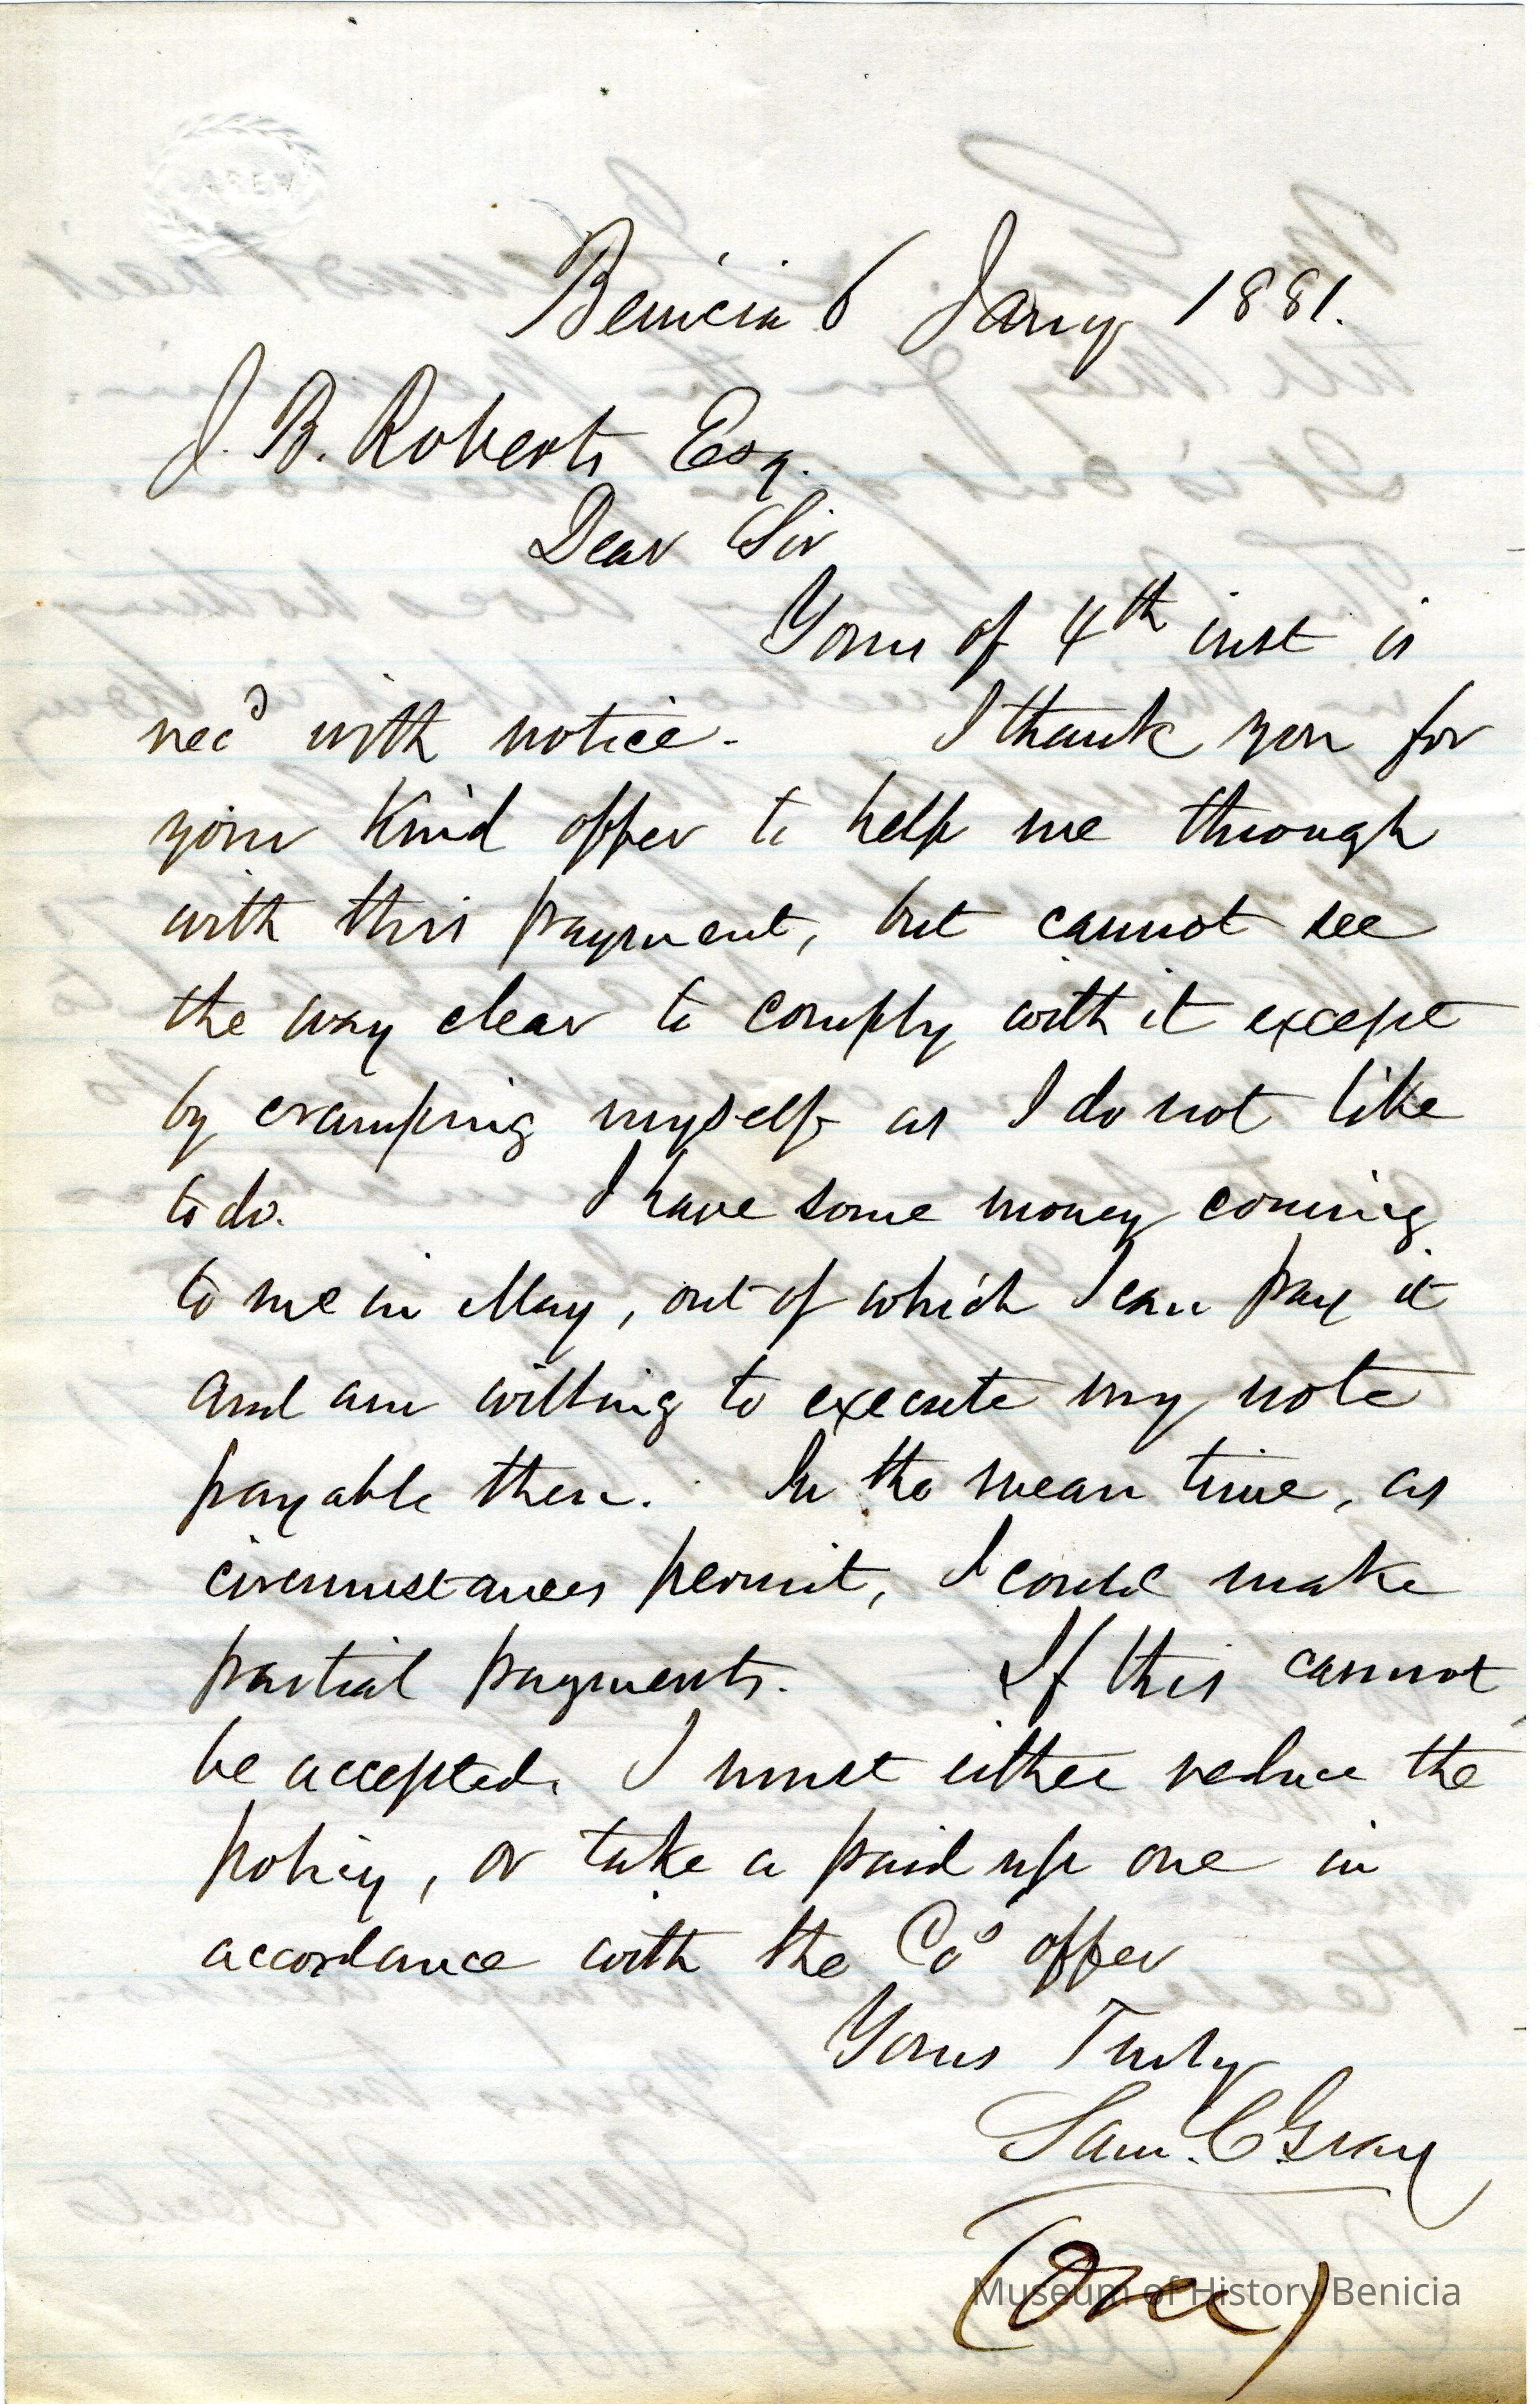 Benicia 6 Jany 1881.
J. B. Roberts Esq.
Dear Sir
Yours of 4th inst is
recd with notice. I thank you for
your kind offer to help me through
with this payment, but cannot see
the way clear to comply with it except
by cramping myself as I do not like
to do. I have some money coming
to me in May, out of which I can pay it
and am willing to execute my note
payable then. In the mean time, as
circumstances permit, I could make
partial payments. If this cannot
be accepted, I must either reduce the
policy, or take a paid up one in
accordance with the Co's offer
Yours Truly
Sam. C Gray
(Over)
Museum of History Benicia